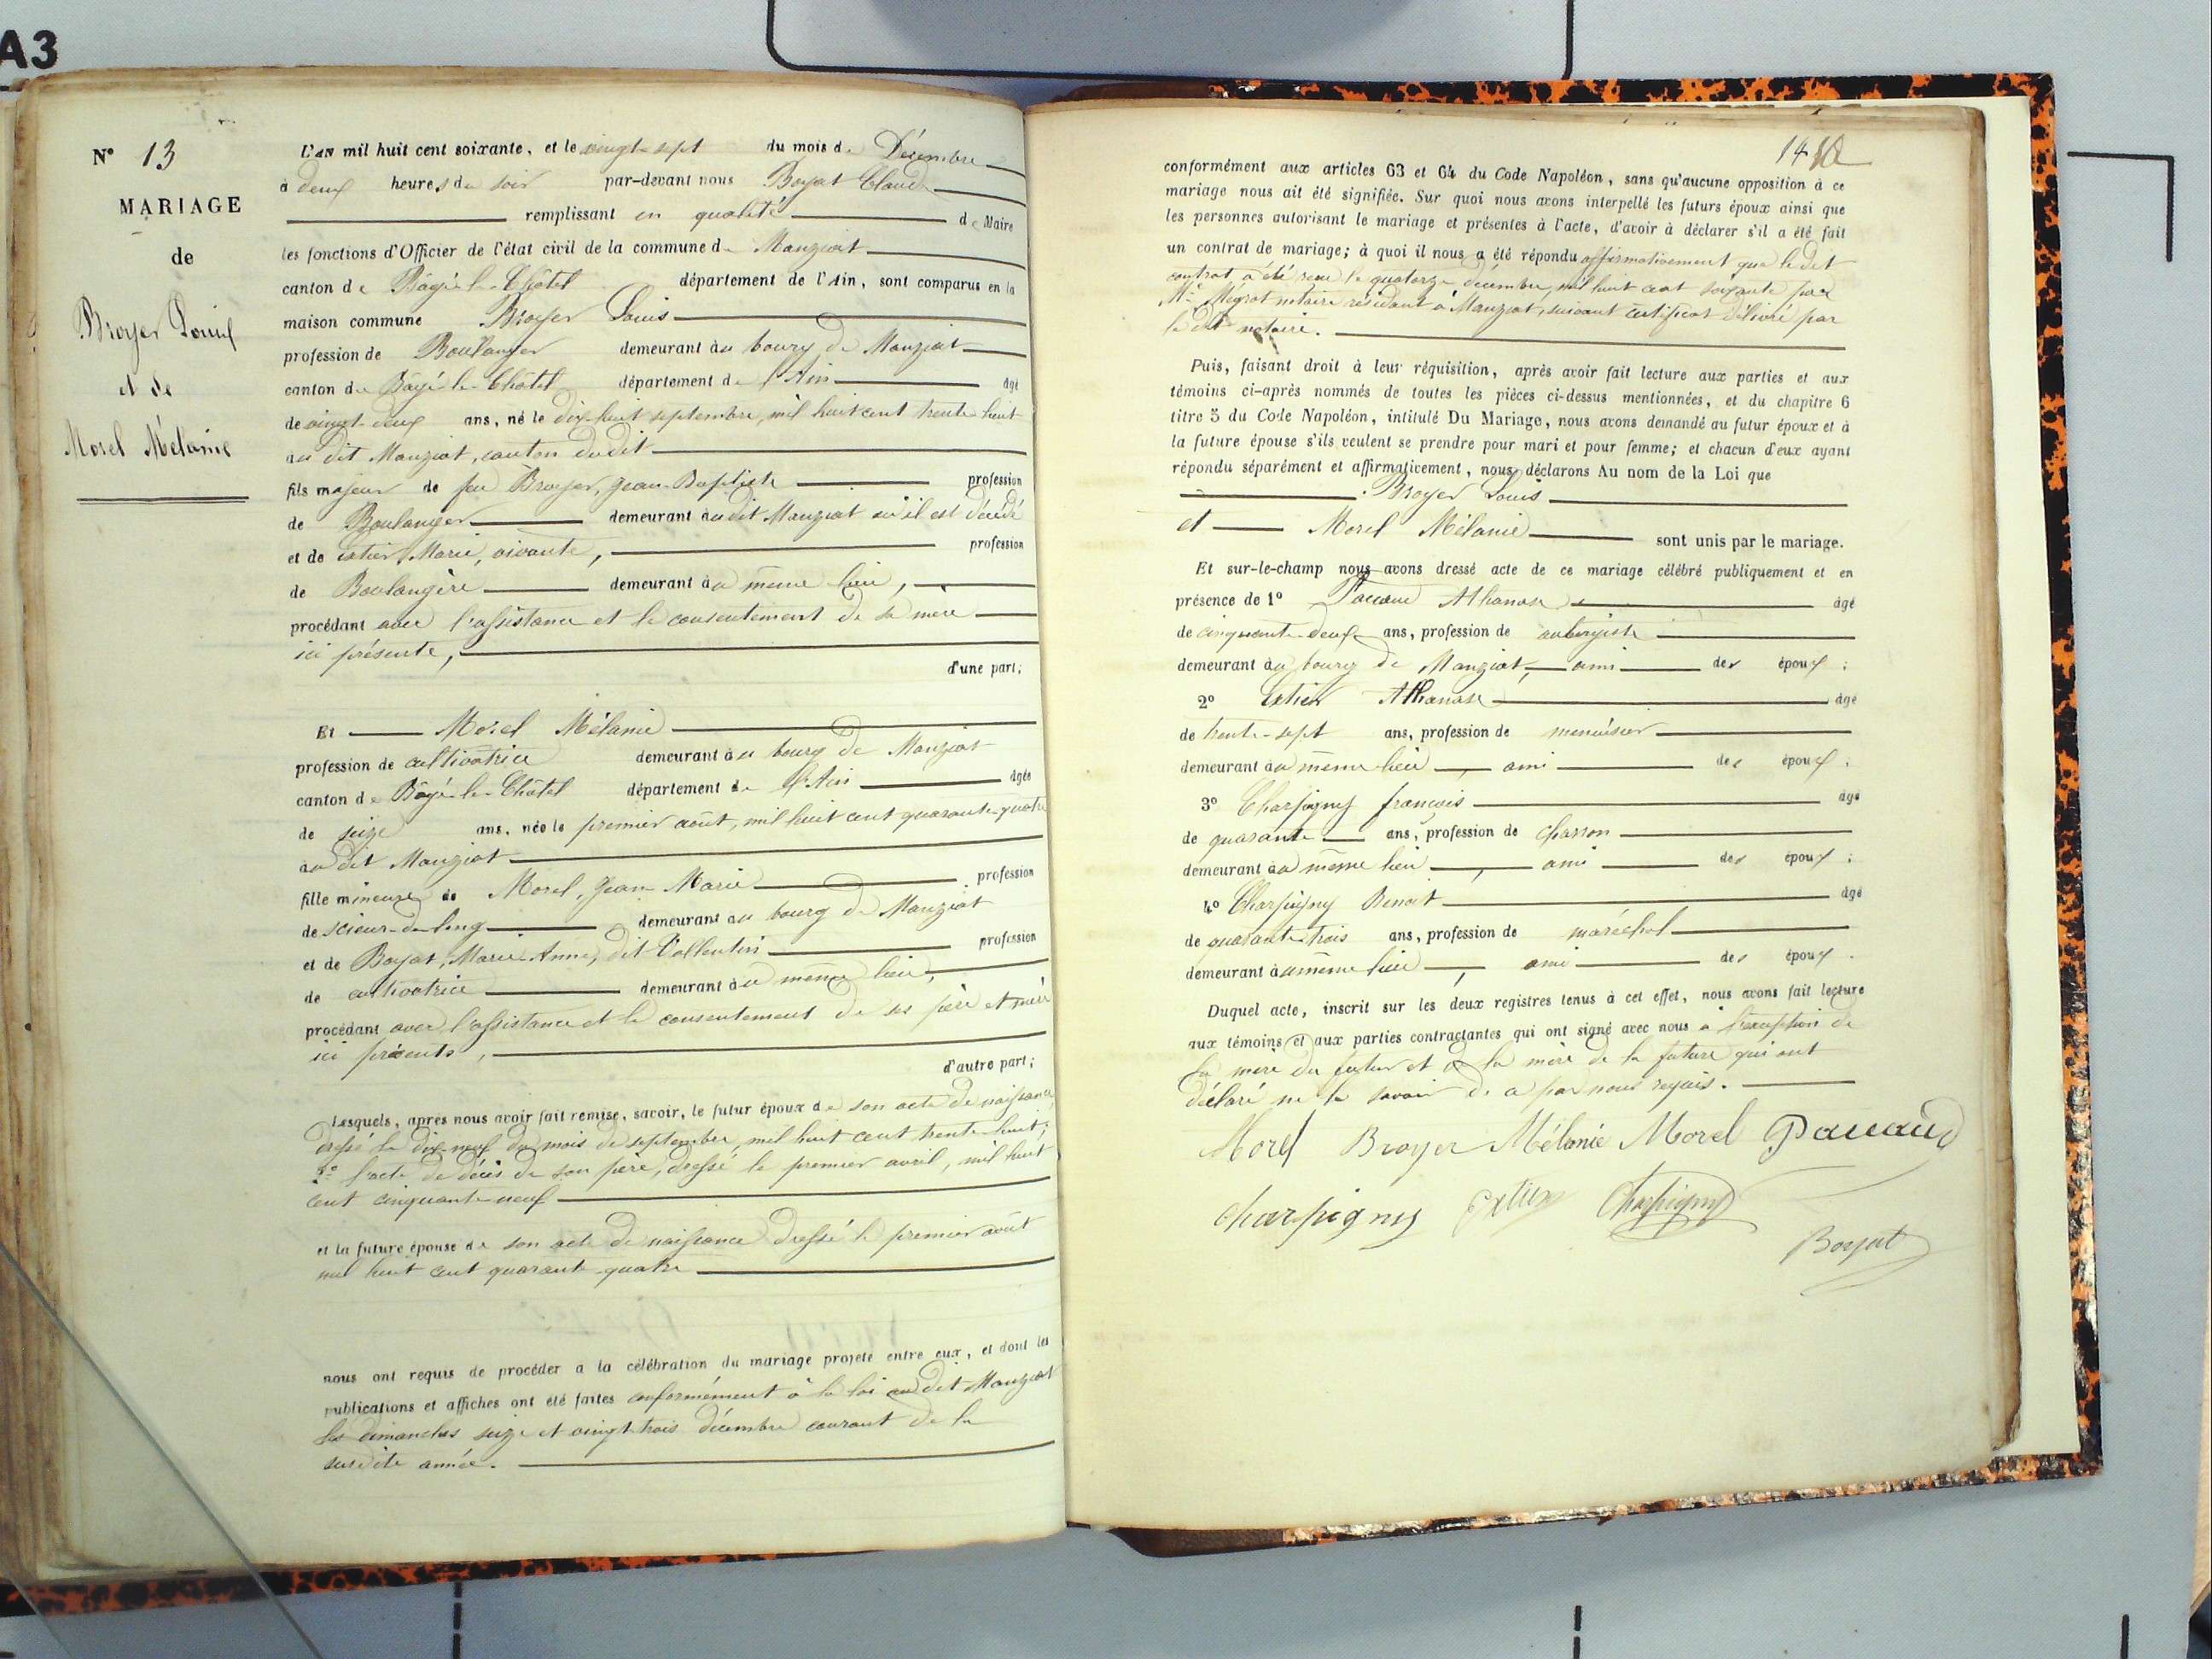 A3
N° 13
MARIAGE
de
Broyer Louis
et de
Morel Mélanie
L'an mil huit cent soixante, et le vingt-sept du mois de Décembre
à deux heures du soir par-devant nous Boyat Claude
remplissant en qualité de Maire
les fonctions d'Officier de l'état civil de la commune de Manziat
canton de Bâgé-le-Châtel département de l'Ain, sont comparus en la
maison commune Broyer Louis
profession de Boulanger demeurant au bourg de Manziat
canton de Bâgé-le-Châtel département de l'Ain âgé
de vingt-deux ans, né le dix-huit septembre, mil huit cent trente-huit
au dit Manziat, canton dudit
fils majeur de feu Broyer, Jean-Baptiste profession
de Boulanger demeurant audit Manziat où il est décédé
et de Extier Marie, vivante, profession
de Boulangère demeurant au même lieu,
procédant avec l'assistance et le consentement de sa mère
ici présente,
d'une part;
Et Morel Mélanie
profession de cultivatrice demeurant au bourg de Manziat
canton de Bâgé-le-Châtel département de l'Ain âgée
de seize ans, née le premier août, mil huit cent quarante-quatre
au dit Manziat
fille mineure de Morel, Jean-Marie profession
de scieur-de-long demeurant au bourg de Manziat
et de Boyat, Marie-Anne, dit Vollentin profession
de cultivatrice demeurant au même lieu,
procédant avec l'assistance et le consentement de ses père et mère
ici présents,
d'autre part;
Lesquels, après nous avoir fait remise, savoir, le futur époux de son acte de naissance
dressé le dix-neuf du mois de septembre mil huit cent trente-huit;
2° l'acte de décès de son père, dressé le premier avril, mil huit
cent cinquante-neuf
et la future épouse de son acte de naissance dressé le premier août
mil huit cent quarante-quatre
nous ont requis de procéder à la célébration du mariage projeté entre eux, et dont les
publications et affiches ont été faites conformément à la loi audit Manziat
les dimanches seize et vingt-trois décembre courant de la
susdite année.
14
conformément aux articles 63 et 64 du Code Napoléon, sans qu'aucune opposition à ce
mariage nous ait été signifiée. Sur quoi nous avons interpellé les futurs époux ainsi que
les personnes autorisant le mariage et présentes à l'acte, d'avoir à déclarer s'il a été fait
un contrat de mariage; à quoi il nous a été répondu affirmativement que le dit
contrat a été reçu le quatorze décembre, mil huit cent soixante par
Me Mégrot notaire résidant à Manziat, suivant certificat délivré par
le dit notaire.
Puis, faisant droit à leur réquisition, après avoir fait lecture aux parties et aux
témoins ci-après nommés de toutes les pièces ci-dessus mentionnées, et du chapitre 6
titre 5 du Code Napoléon, intitulé Du Mariage, nous avons demandé au futur époux et à
la future épouse s'ils veulent se prendre pour mari et pour femme; et chacun d'eux ayant
répondu séparément et affirmativement, nous déclarons Au nom de la Loi que
Broyer Louis
et Morel Mélanie sont unis par le mariage.
Et sur-le-champ nous avons dressé acte de ce mariage célébré publiquement et en
présence de 1° Pauaud Athanase âgé
de cinquante-deux ans, profession de aubergiste
demeurant au bourg de Manziat, ami des époux;
2° Extier Athanase âgé
de trente-sept ans, profession de menuisier
demeurant au même lieu, ami des époux;
3° Charpigny françois âgé
de quarante ans, profession de charron
demeurant au même lieu, ami des époux;
4° Charpigny Benoit âgé
de quarante-trois ans, profession de maréchal
demeurant au même lieu, ami des époux.
Duquel acte, inscrit sur les deux registres tenus à cet effet, nous avons fait lecture
aux témoins et aux parties contractantes qui ont signé avec nous à l'exception de
la mère du futur et de la mère de la future qui ont
déclaré ne le savoir de ce par nous requis.
Morel Broyer Mélanie Morel Pauaud
Charpigny Extier Charpigny
Boyat